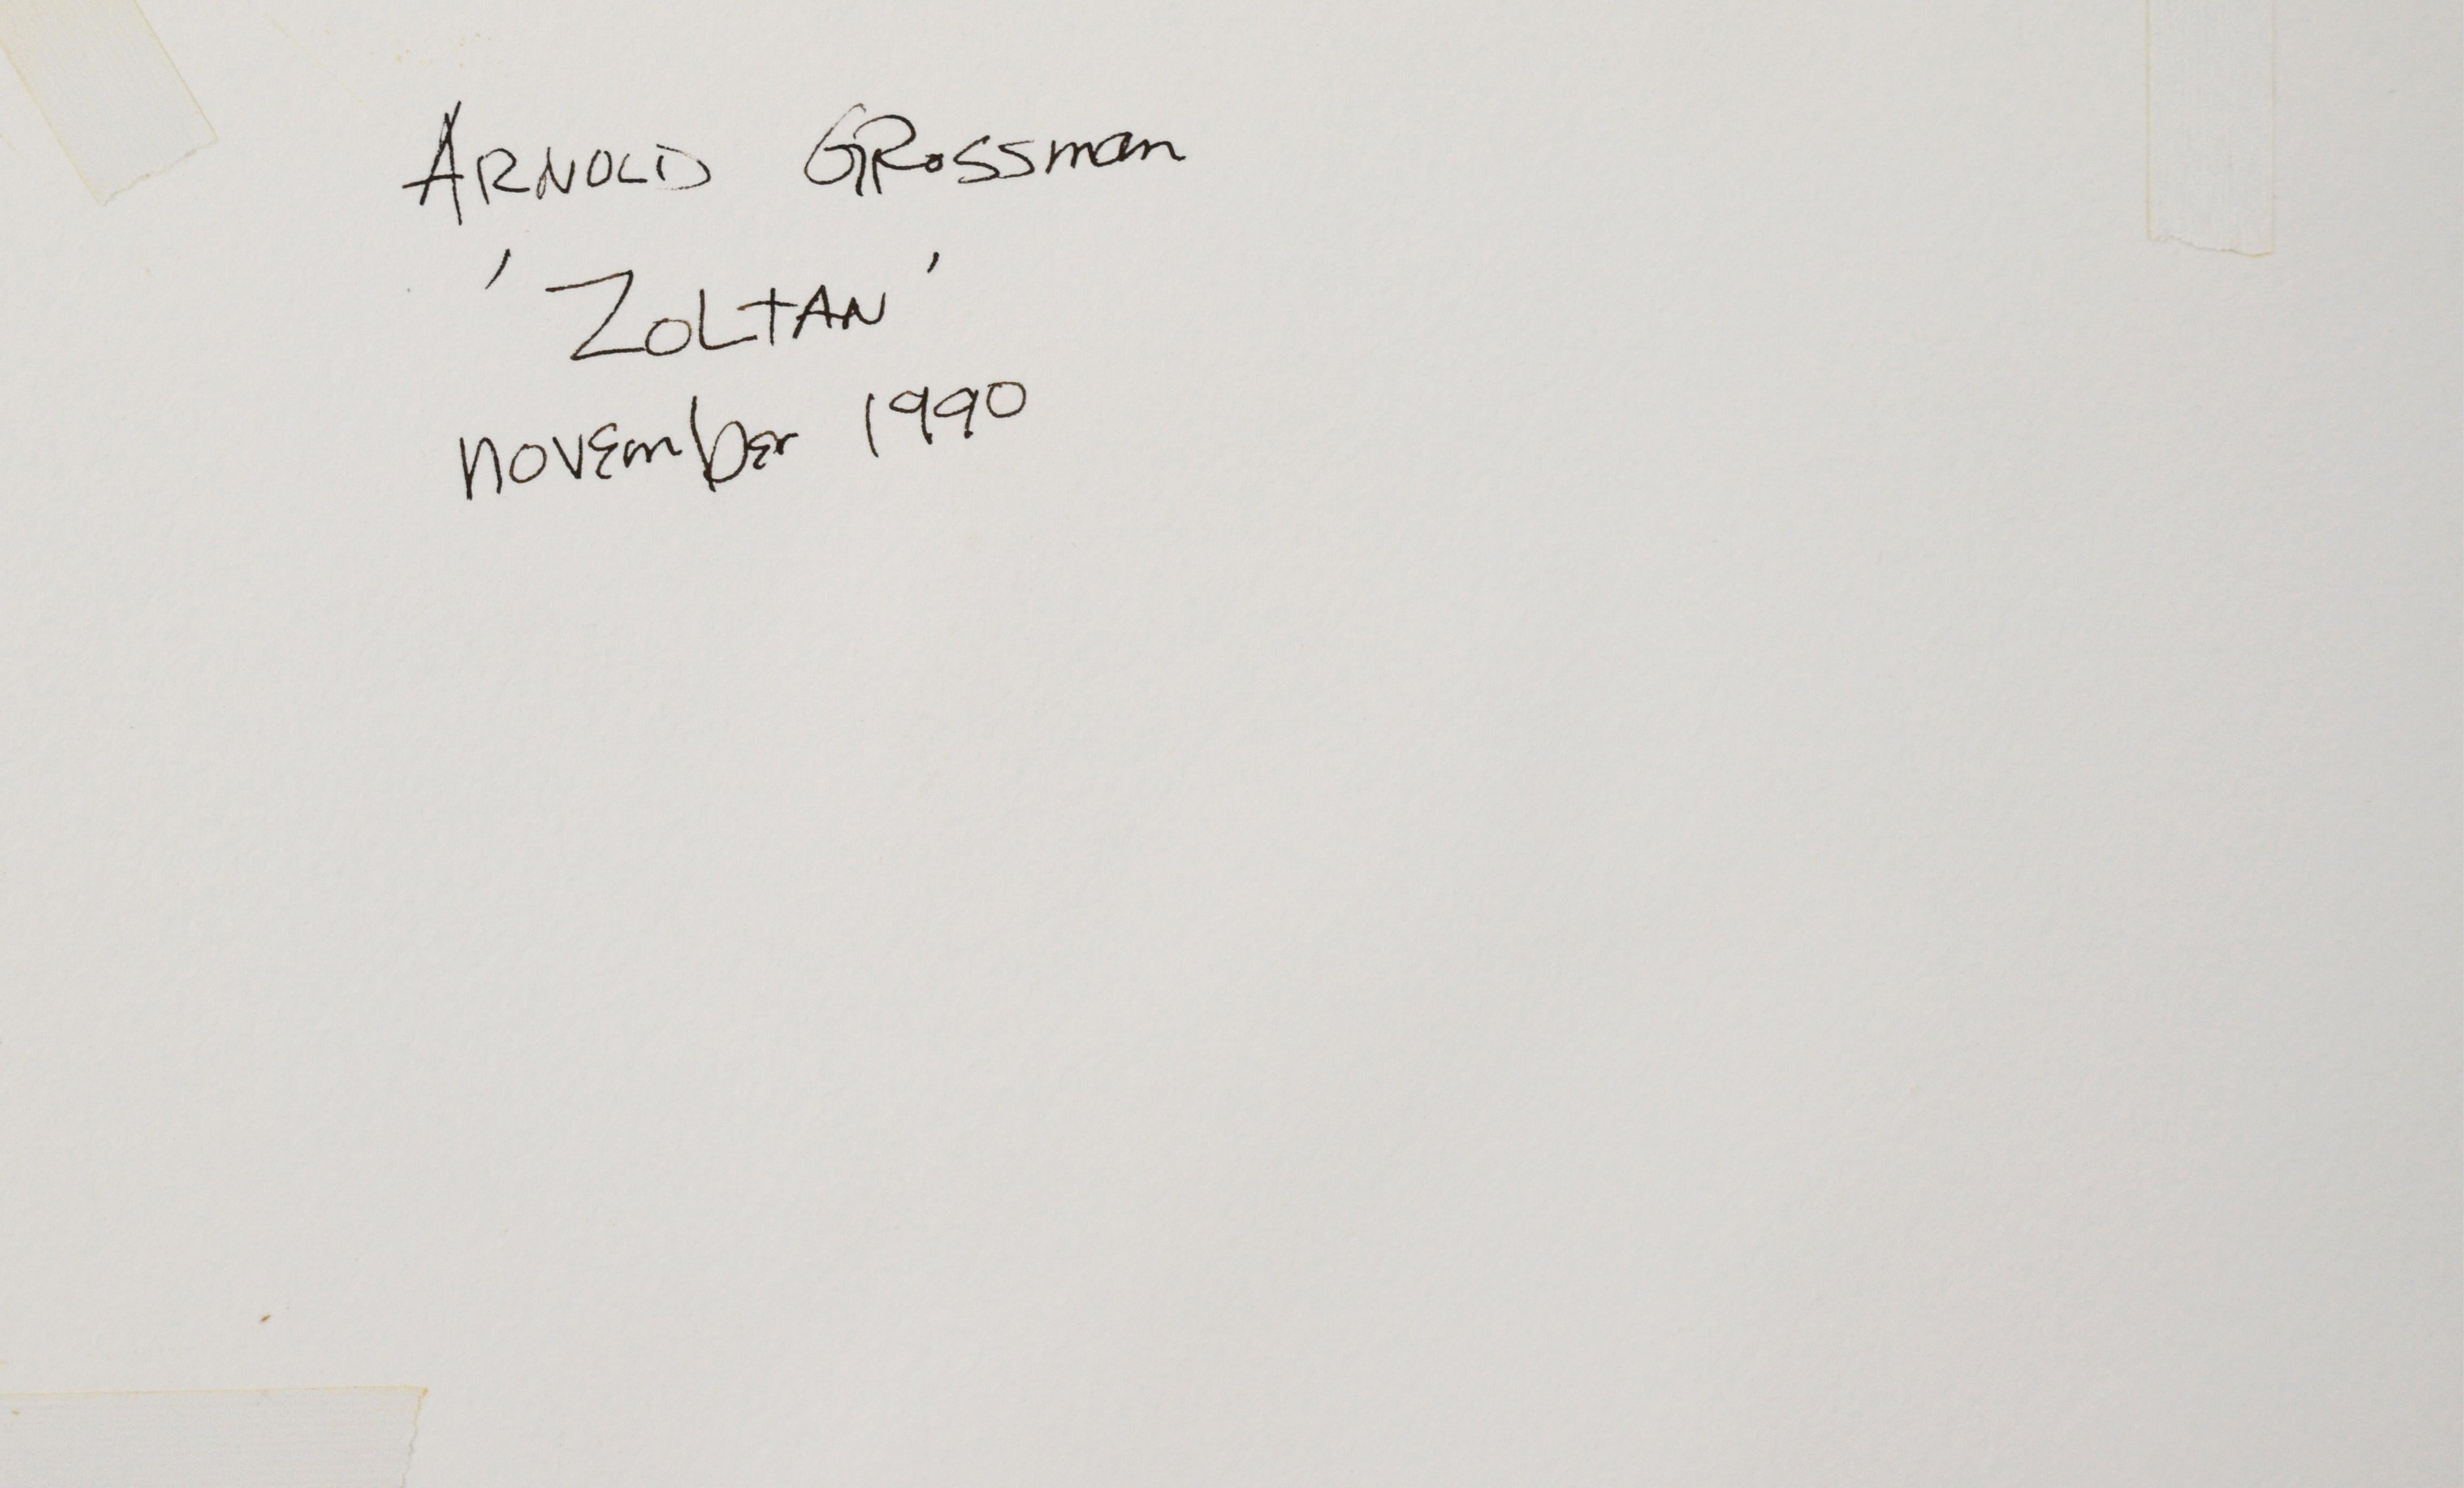 ARNOLD GROSSman
'ZOLTAN'
november 1990